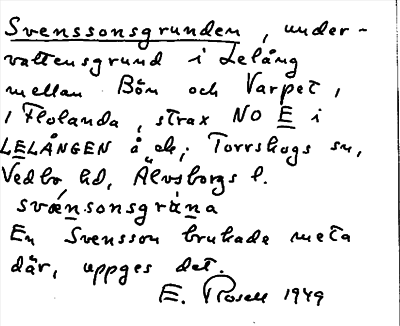 Svenssonsgrunden, under-
vattensgrund i Lelång
mellan Bön och Varpet,
i Flolanda, strax NO E i
LELÅNGEN å ek; Torrskogs sn,
Vedbo hd, Älvsborgs l.
svǽnsonsgràna
En Svensson brukade meta
där, uppges det.
E. Rosell 1949